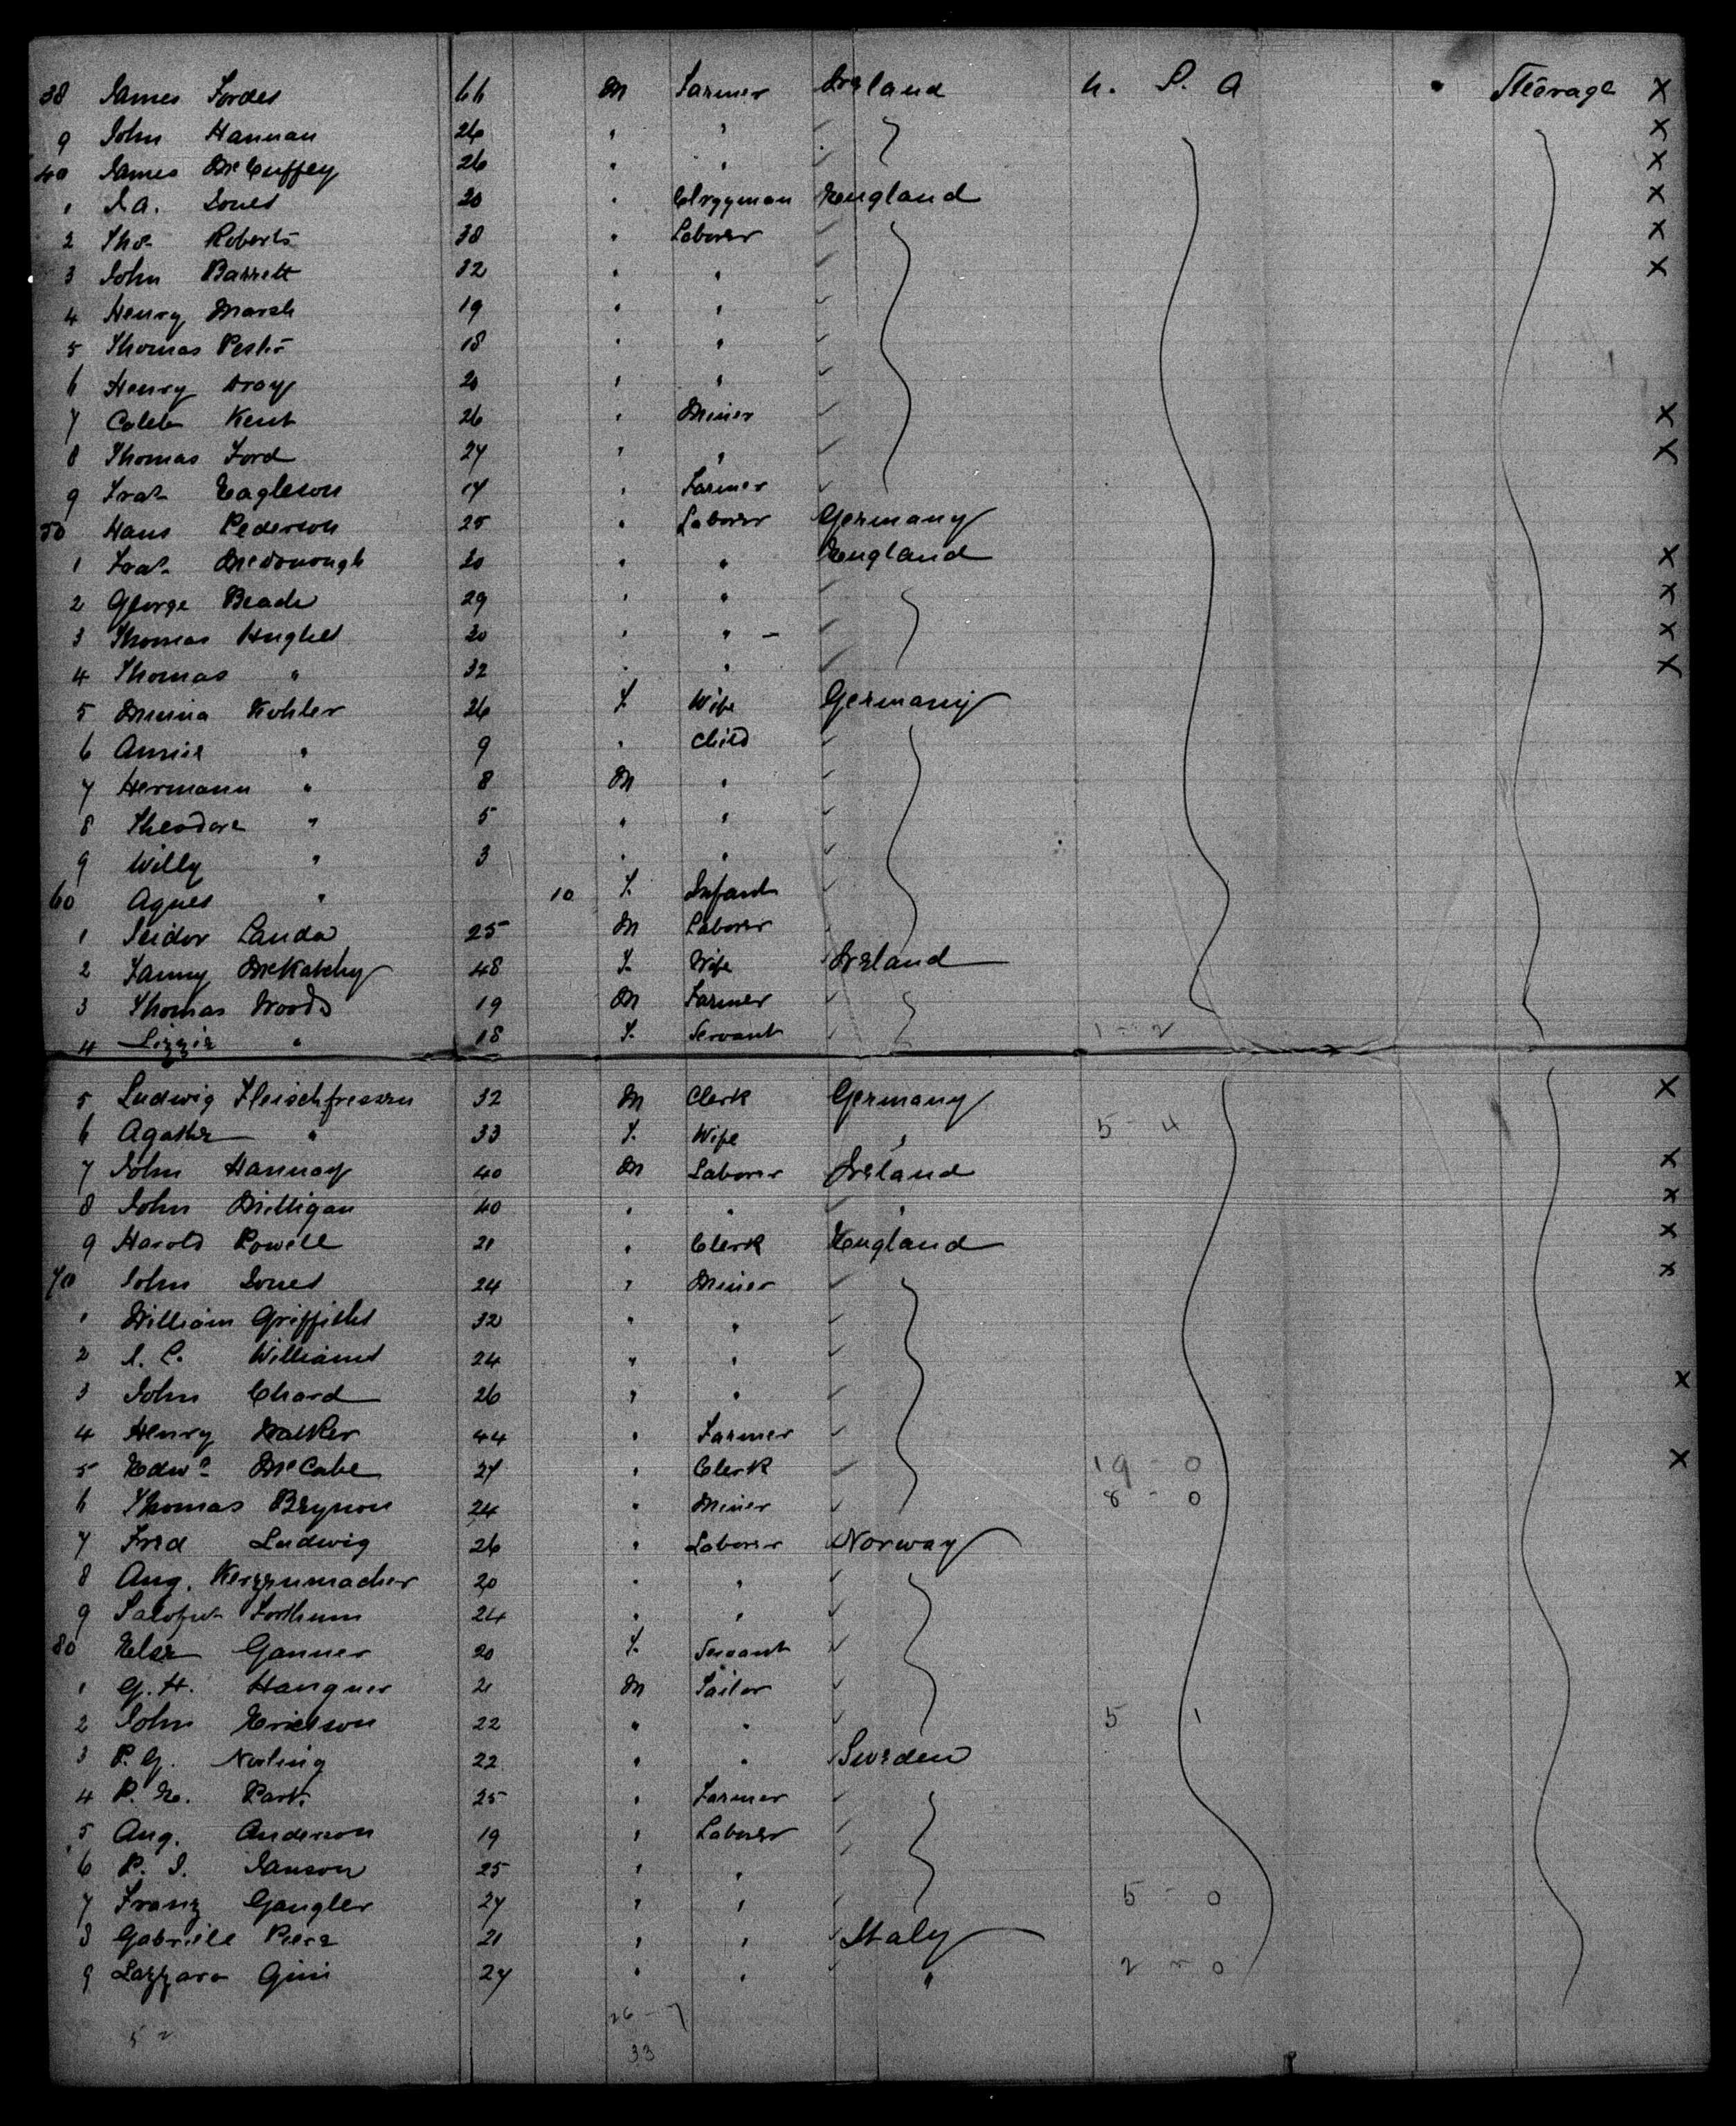 38 James Fordes 66 M Farmer Ireland U. S. A " Steerage X
9 John Hannan 26 " " ✓ X
40 James McGuffey 26 " " ✓ X
1 J.A. Jones 20 " Clergyman England X
2 Thos Roberts 38 " Laborer ✓ X
3 John Barrett 32 " " ✓ X
4 Henry Marsh 19 " " ✓
5 Thomas 18 " " ✓
6 Henry 20 " " ✓
7 Caleb Kent 26 " Miner ✓ X
8 Thomas Ford 27 " " ✓ X
9 Fras Eagleson 17 " Farmer ✓
50 Hans Pederson 25 " Laborer Germany
1 Fras McDonough 20 " " England X
2 George Beade 29 " " ✓ X
3 Thomas Hughes 20 " " - ✓ X
4 Thomas " 32 " " ✓ X
5 Minna Kohler 26 F. Wife Germany
6 Annie " 9 " Child ✓
7 Hermann " 8 M " ✓
8 Theodore " 5 " " ✓
9 Willy " 3 " " ✓
60 Agnes " 10 F. Infant ✓
1 Isidor Landa 25 M Laborer ✓
2 Fanny McKatchy 48 F. Wife Ireland
3 Thomas Woods 19 M Farmer ✓
4 Lizzie " 18 F. Servant ✓ 1 - 2
5 Ludwig Fleischfresser 32 M Clerk Germany X
6 Agathe " 33 F. Wife " 5 - 4
7 John Hannay 40 M Laborer Ireland X
8 John Milligan 40 " " ✓ " X
9 Harold Powell 21 " Clerk England X
70 John Jones 24 " Miner ✓ X
1 William Griffiths 32 " " ✓
2 Williams 24 " " ✓
3 John Chard 26 " " ✓ X
4 Henry Walker 44 " Farmer ✓
5 Edwd McCabe 27 " Clerk ✓ 19 - 0 X
6 Thomas Beynon 24 " Miner ✓ 8 - 0
7 Fred Ludwig 26 " Laborer Norway
8 Aug. 20 " " ✓
9 24 " " ✓
80 Else Ganner 20 F. Servant ✓
1 G.H. Hangner 21 M Sailor ✓
2 John Erickson 22 " " ✓ 5 1
3 P.G. Norling 22 " " Sweden
4 P. E. Park 25 " Farmer ✓
5 Aug. Anderson 19 " Laborer ✓
6 P. J. Janson 25 " "
7 Franz Gangler 27 " " ✓ 5 - 0
8 Gabriele Piera 21 " " ✓ Italy
9 Lazzaro Gini 27 " " ✓ " 2 - 0
26 - 7
5 2
33